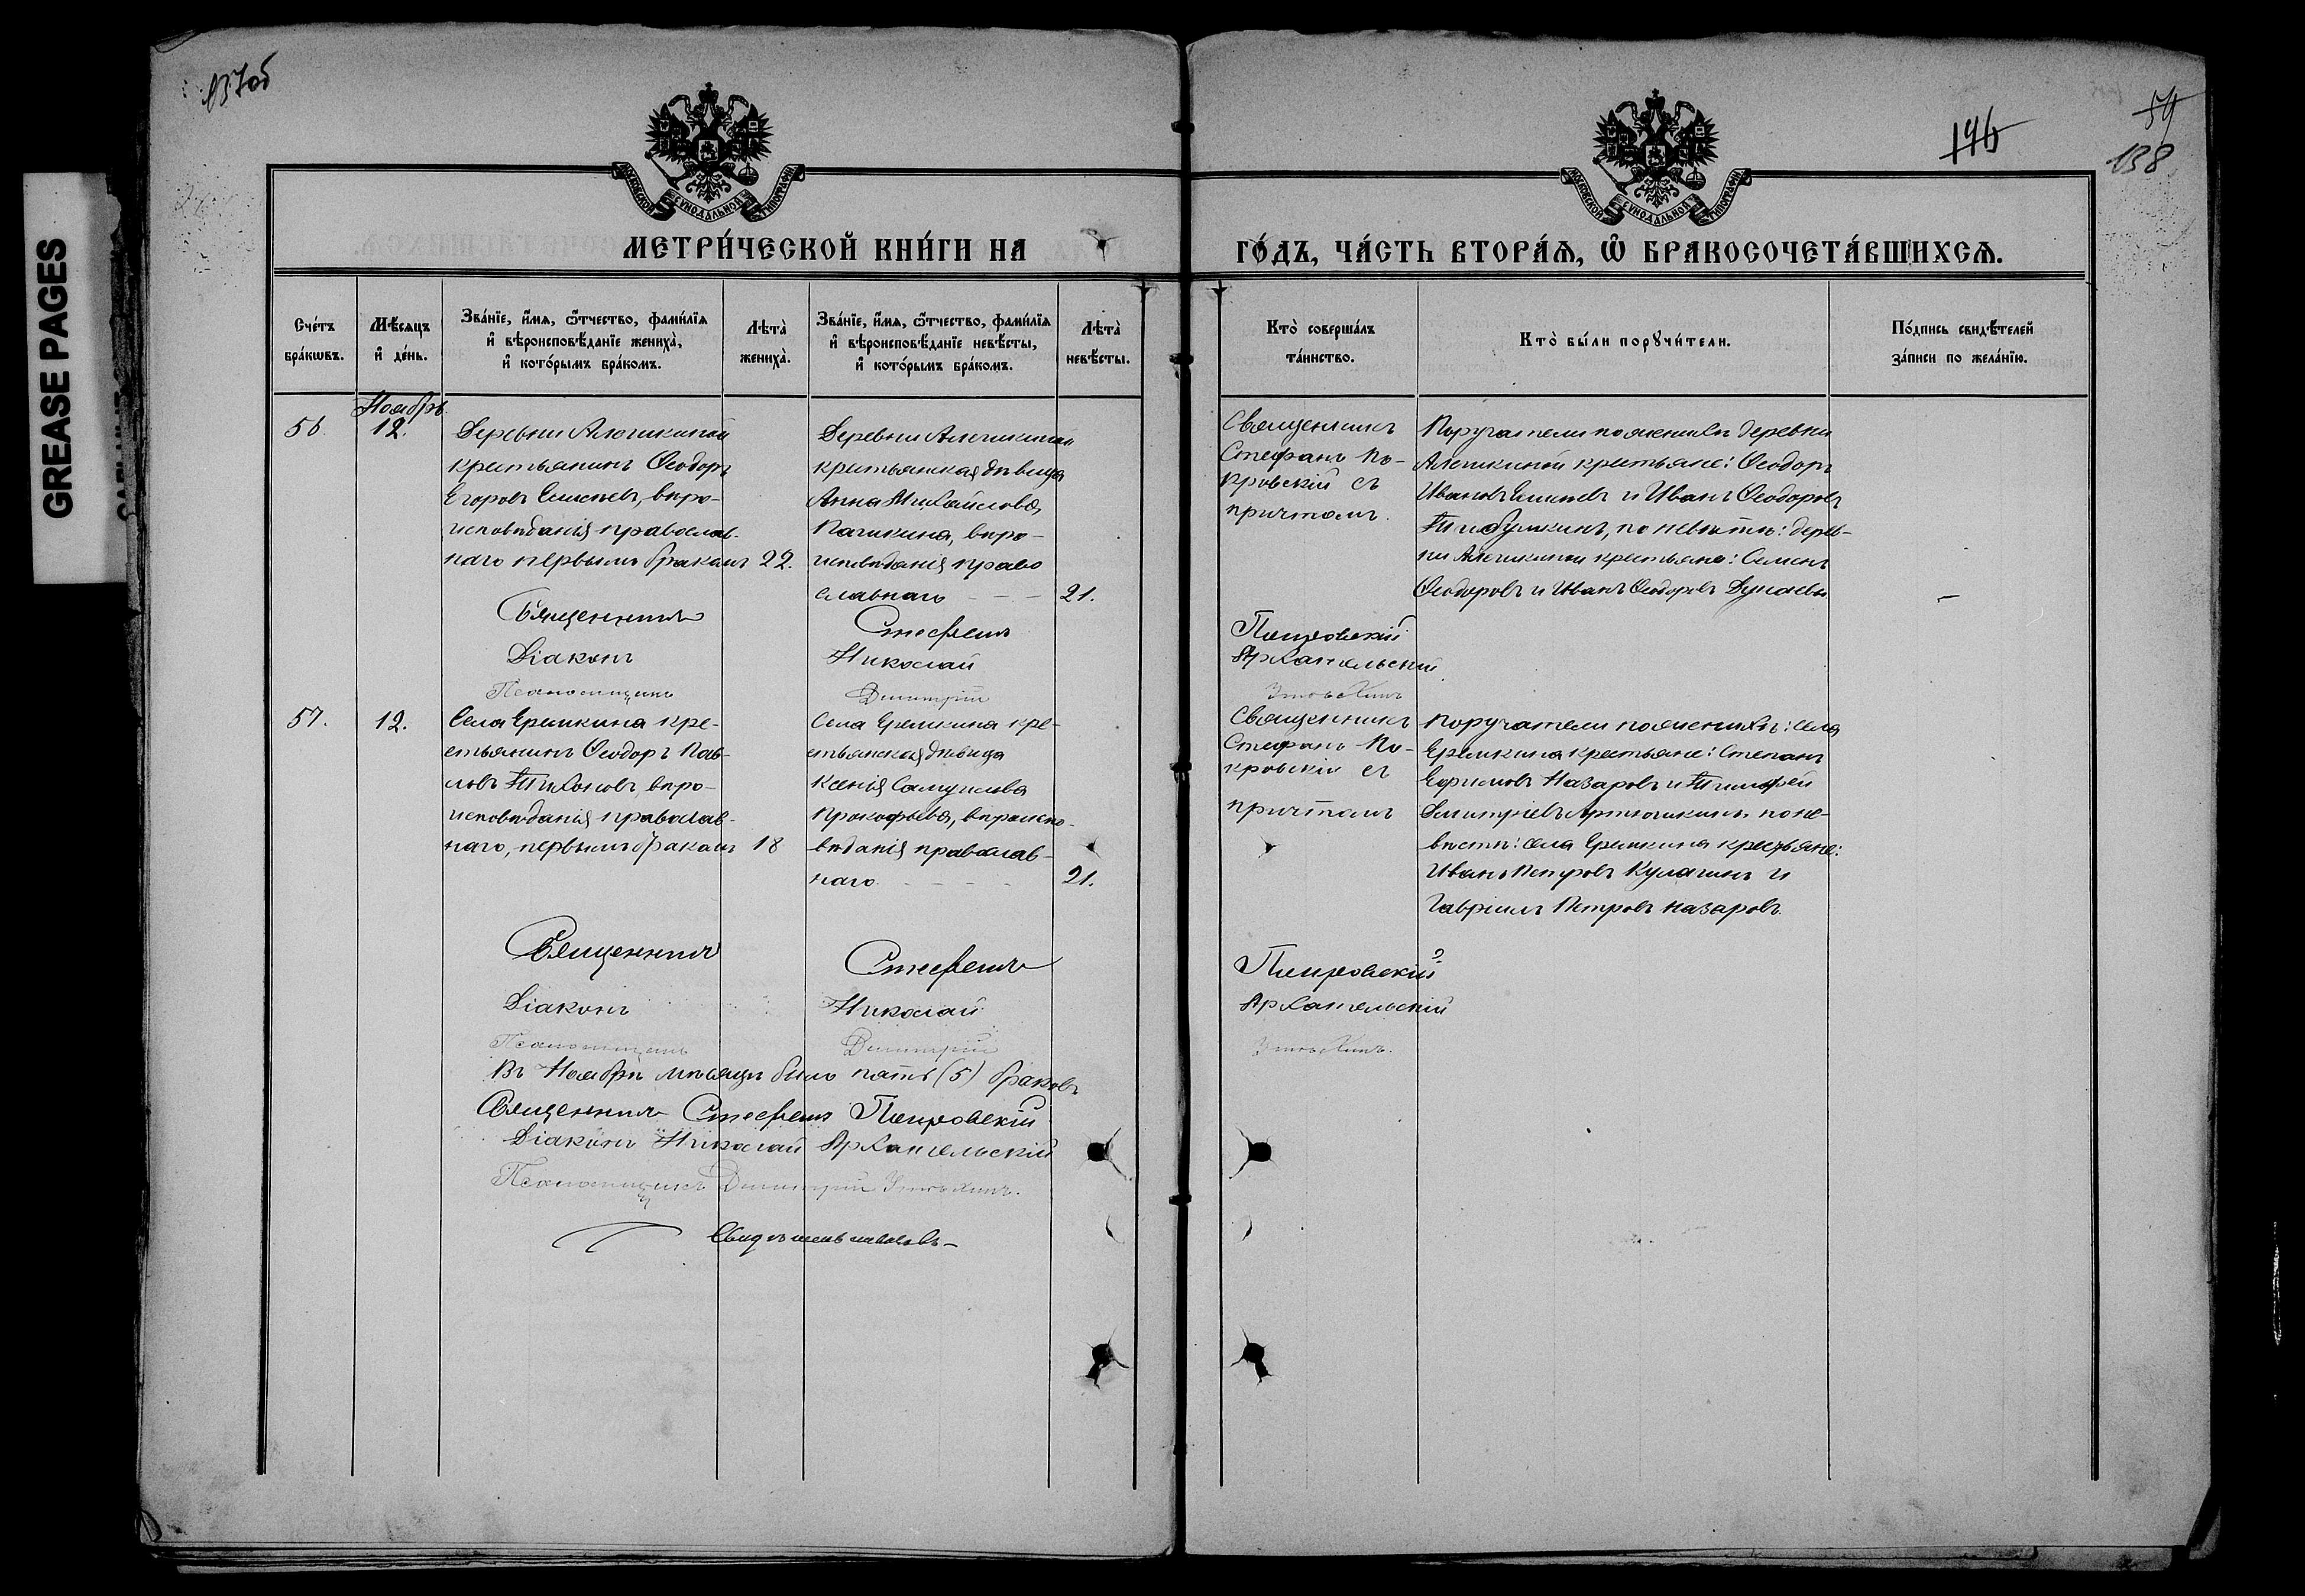 GREASE PAGES
137об
146
59
138
МОСКОВСКОЙ СѴНОДАЛЬНОЙ ТИПОГРАФІИ
МОСКОВСКОЙ СѴНОДАЛЬНОЙ ТИПОГРАФІИ
МЕТРИ́ЧЕСКОЙ КНИ́ГИ НА
ГО́ДЪ, ЧА́СТЬ ВТОРА́Ѧ, Ѽ БРАКОСОЧЕТА́ВШИХСѦ.
Сче́тъ бра́кѡвъ.
Мѣ́сѧцъ и҆ де́нь.
Зва́нїе, и҆́мѧ, ѻ҆́тчество, фами́лїѧ и҆ вѣроисповѣ́данїе жениха̀, и҆ кото́рымъ бра́комъ.
Лѣта̀ жениха̀.
Зва́нїе, и҆́мѧ, ѻ҆́тчество, фами́лїѧ и҆ вѣроисповѣ́данїе невѣ́сты, и҆ кото́рымъ бра́комъ.
Лѣта̀ невѣ́сты.
Кто̀ соверша́лъ та́инство.
Кто̀ бы́ли порꙋчи́тели.
По́дпись свидѣ́телей за́писи по жела́нїю.
Ноябрь
56.
12.
Деревни Алешкиной
крестьянинъ Ѳеодоръ
Егоровъ Елисѣевъ, вѣро-
исповѣданія православ-
наго первымъ бракомъ
22.
Деревни Алешкиной
крестьянская дѣвица
Анна Михайлова
Пашкина, вѣро-
исповѣданія право
славнаго - - -
21.
Священникъ
Стефанъ По-
кровскій съ
причтомъ.
Поручатели по женихѣ деревни
Алешкиной крестьяне: Ѳеодоръ
Ивановъ Елисѣевъ и Иванъ Ѳеодоровъ
по невѣстѣ: дерев-
ни Алешкиной крестьяне: Семенъ
Ѳеодоровъ и Иванъ Ѳеодоровъ Дунаевы
Священникъ Стефанъ Покровскій
Діаконъ Николай Архангельскій
Псаломщикъ Димитрій
57.
12.
Села Еремкина кре-
стьянинъ Ѳеодоръ Пав-
ловъ Тихоновъ, вѣро-
исповѣданія православ-
наго, первымъ бракомъ
18
Села Еремкина кре-
стьянская дѣвица
Ксенія Самуилова
Прокофьева, вѣроиспо-
вѣданія православ-
наго - - - -
21.
Священникъ
Стефанъ По-
кровскій съ
причтомъ
Поручатели по женихѣ: села
Еремкина крестьяне: Степанъ
Ефимовъ Назаровъ и Тимофей
Димитріевъ Артюшкинъ, по не-
вѣстѣ: села Еремкина крестьяне:
Иванъ Петровъ Кулагинъ и
Гавріилъ Петровъ Назаровъ.
Священникъ Стефанъ Покровскій
Діаконъ Николай Архангельскій
Псаломщикъ Димитрій
Въ Ноябрѣ мѣсяцѣ было пять (5) браковъ
Священникъ Стефанъ Покровскій
Діаконъ Николай Архангельскій
Псаломщикъ Димитрій